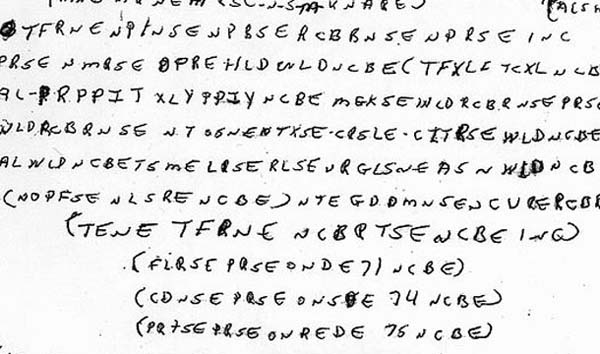 TFRNENPINSENPBSERCBRNSENPRSEINC
PRSE NMRSE OPREHLDWLDNCBE(TFXLF TCXL NCB
AL-PRPPIT XLYPPIY NCBE MGKSEWLDRCBRNSEPRSE
WLDRCBRNSE CRSLE-CITRSE WLDNCBE
ALWLDNCBETSMELRSERLSEURGLSNEASNWLDNCB
(NOPFSE NLSRENCBE) NTEGDDMNSENCURERCBR
(TENE TFRNE NCBRTSENCBEINC)
(FLRSE PRSE ONDE 71 NCBE)
(CDNSE PRSE ONSDE 74 NCBE)
(PRTSE PRSE ONREDE 75 NCBE)